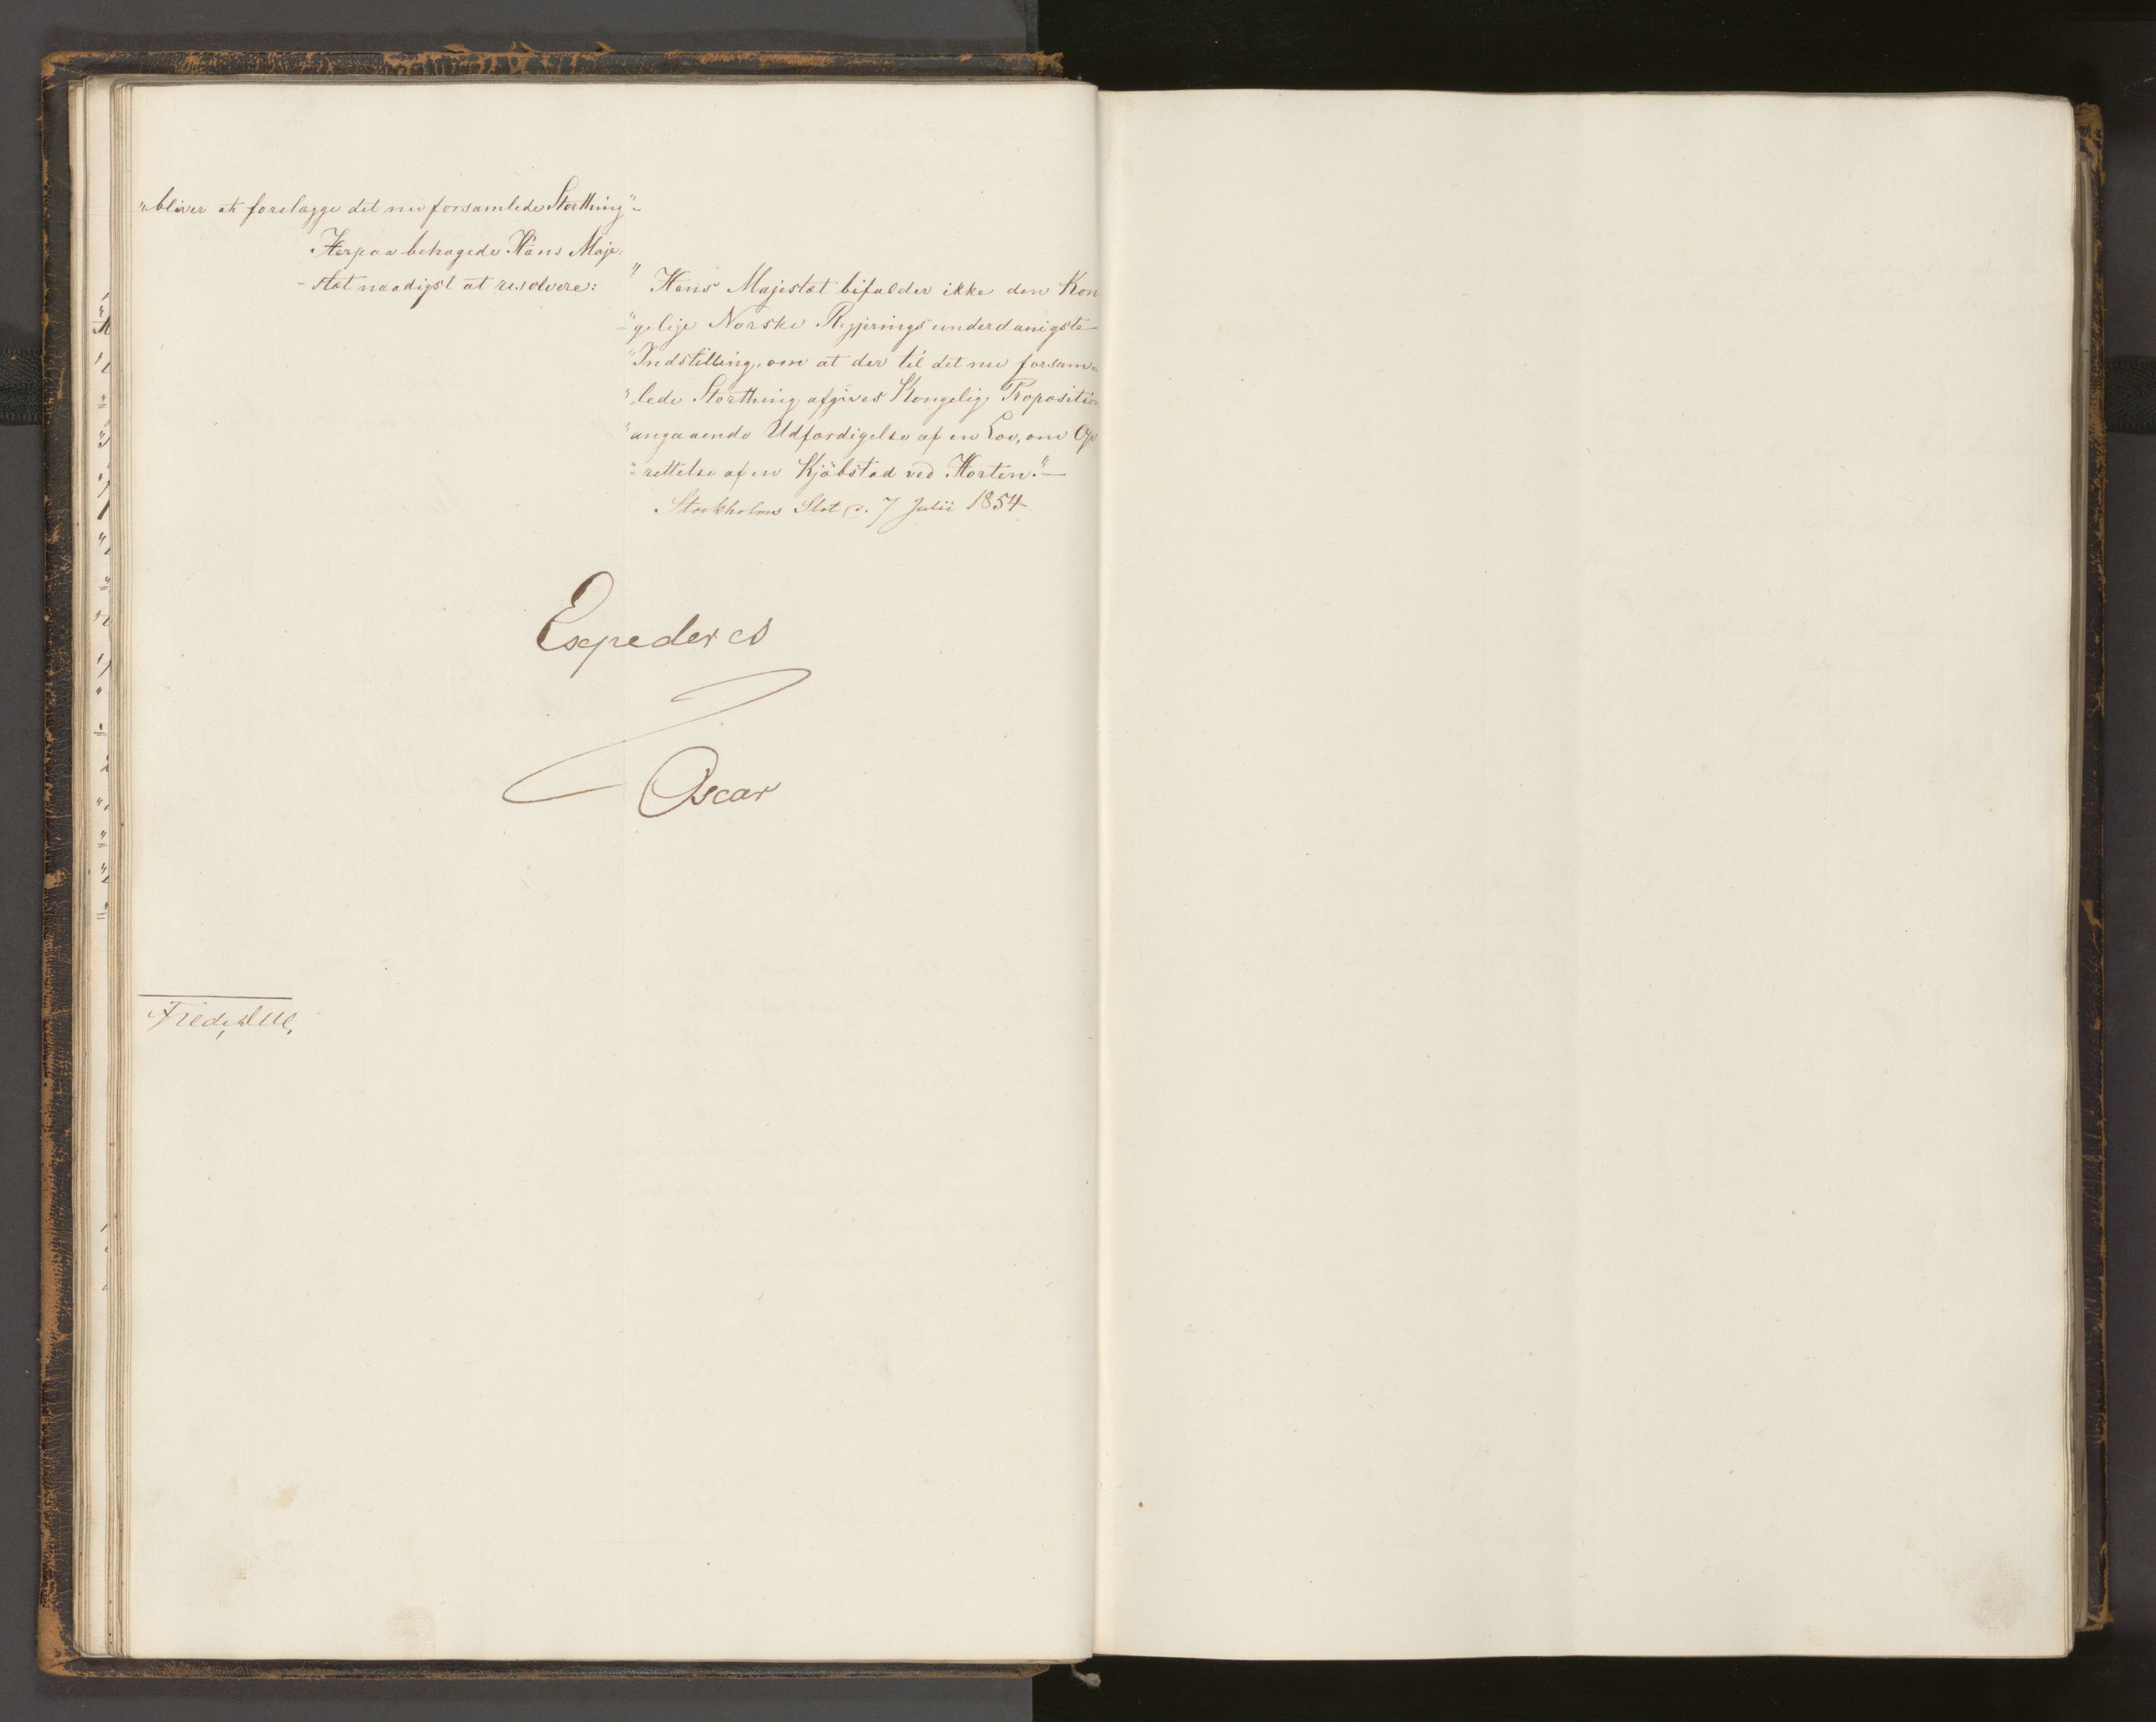 "bliver at forelægge det nu forsamlede Storthing".
Herpaa behagede Hans Maje-
-stæt naadigst at resolvere:
" Hans Majestæt bifalder ikke den Kon
"gelige Norske Regjerings underdanigste
"Indstilling, om at der til det nu forsam-
"lede Storthing afgives Kongelig Proposition
"angaaende Udfærdigelse af en Lov, om Op
"rettelse af en Kjöbstad ved Horten."
Stockholms Slot d. 7 Julii 1854
Expederes
Oscar